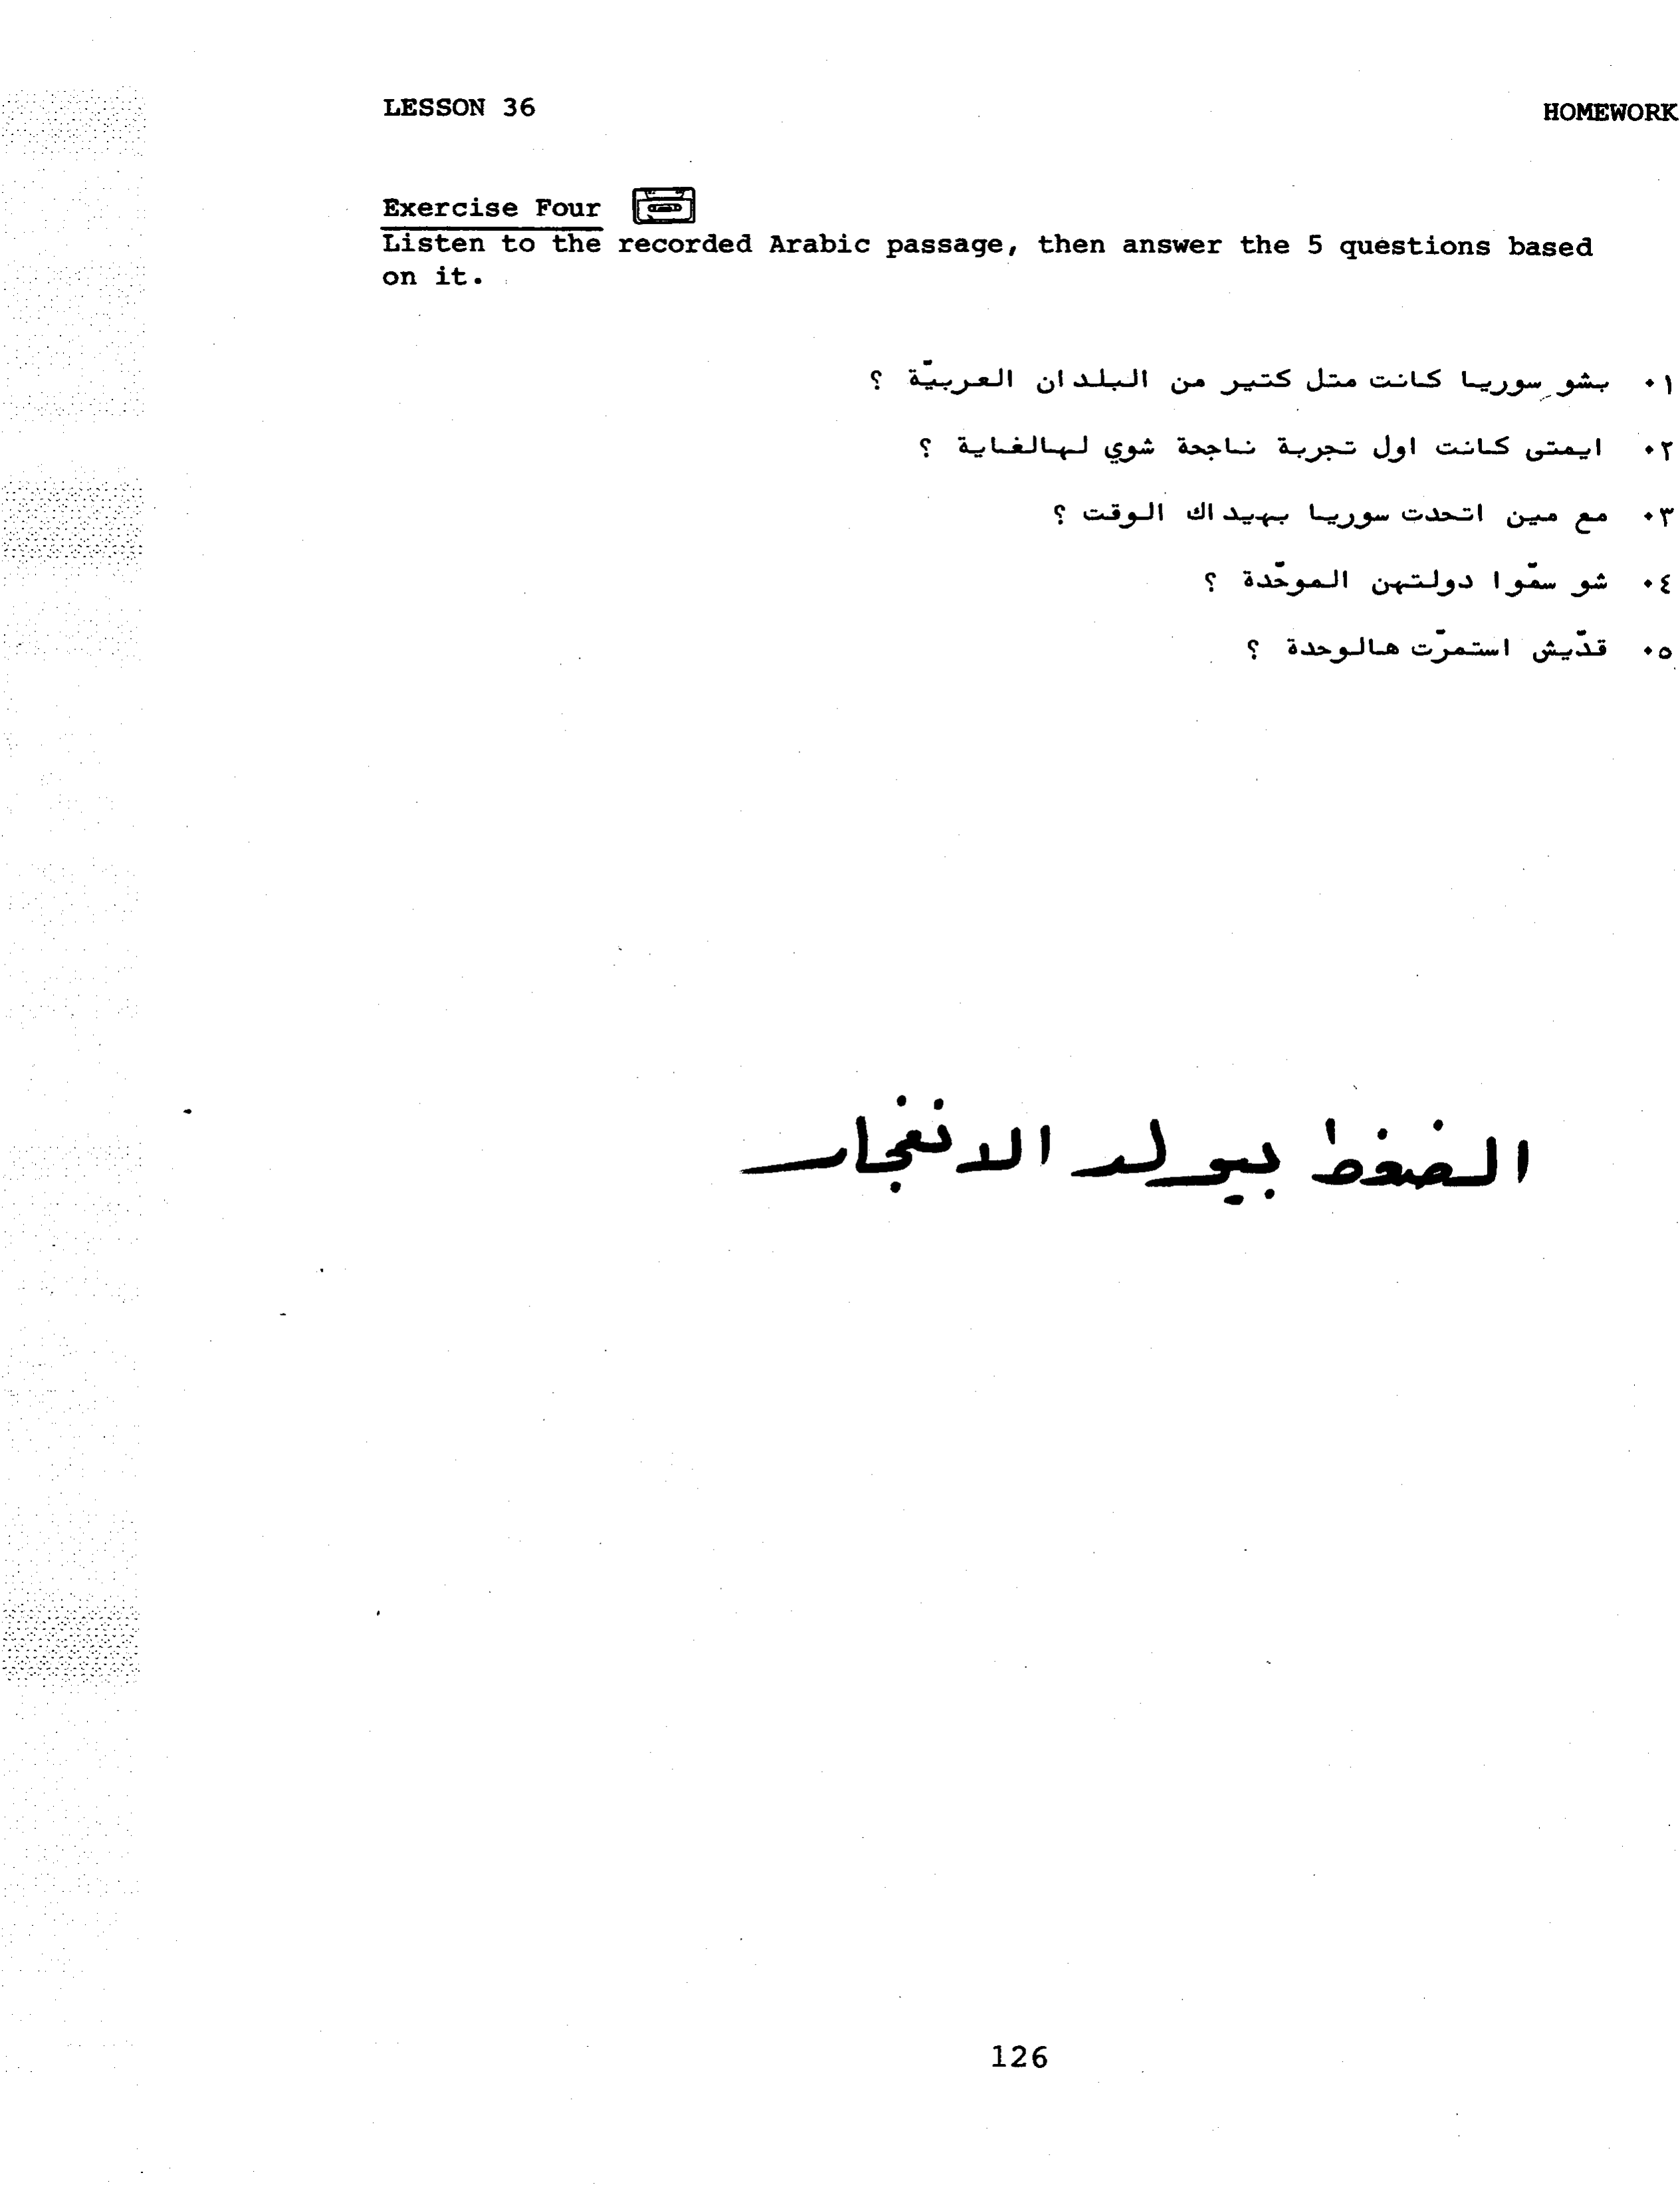 LESSON 36
HOMEWORK
Exercise Four
Listen to the recorded Arabic passage, then answer the 5 questions based
on it.
١٠ بشو سوريا كانت متل كتير من البلدان العربيّة ؟
٢٠ ايمتى كانت اول تجربة ناجحة شوي لهالغاية ؟
٣٠ مع مين اتحدت سوريا بهيداك الوقت ؟
٤٠ شو سمّوا دولتهن الموحّدة ؟
٥٠ قدّيش استمرّت هالوحدة ؟
الضغط بيولد الانفجار
126